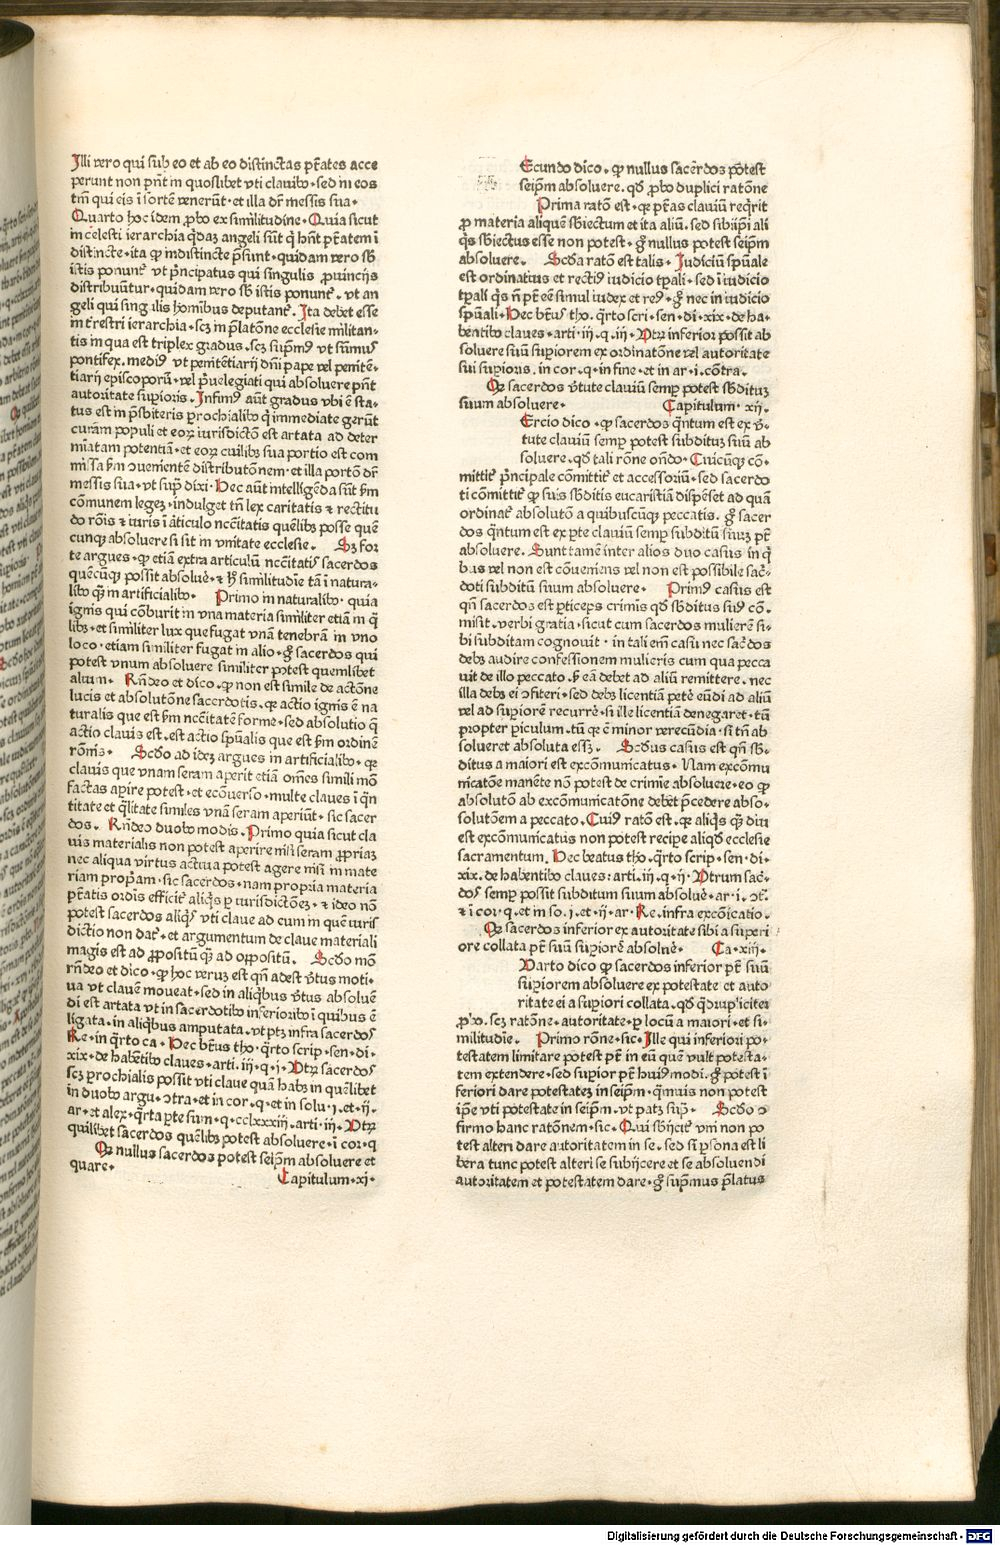 Illi vero qui sub eo et ab eo distinctas p̄tates acce
perunt non p̄nt in quoslibet vti clauibꝰ · sed in eos
tm̄ qui eis ī sortē venerūt · et illa dr̄ messis sua ·
Quarto hoc idem ꝓbo ex similitudine · Quia sicut
in celesti ierarchia q̄daȝ angeli sūt q̄ hn̄t p̄tatem ī
distincte · ita ꝙ indistincte p̄sunt · quidam vero sb̄
istis ponunt᷑ vt p̄ncipatus qui singulis ꝓuincijs
distribuūtur · quidam vero sb̄ istis ponunt᷑ · vt an
geli qui sing ilis hominibus deputant᷑ . Ita debet esse
in t̄restri ierarchia · scȝ in p̄latōne ecclesie militan-
tis in qua est triplex gradus · scȝ sup̄mꝰ vt sūmuꝰ
pontifex . mediꝰ vt penitētiarij dn̄i pape vel penitē-
tiarij episcoporū · vel p̄uelegiati qui absoluere p̄nt
autoritate suꝑioris . Infimꝰ aūt gradus vbi ē sta-
tus est in p̄sbiteris ꝑrochialibꝰ q̄ immediate gerūt
curam populi et eoꝝ iurisdictō est artata ad deter
mīatam potentiā · et eoꝝ cuilibȝ sua portio est com
missa ẜm ↄuenientē distributōnem · et illa portō dr̄
messis sua · vt sup̄ dixi · Hec aūt intelligēda sūt ẜm
cōmunem legeȝ · indulget tn̄ lex caritatis ⁊ rectitu
do rōis ⁊ iuris ī āticulo nccītatis quēlibȝ posse quē
cunqȝ absoluere si sit in vnitate ecclesie . Sȝ for
te argues · ꝙ etiā extra articulū nccītatis sacerdos
quēcūqȝ possit absoluē · ⁊ hꝫ similitudīe tā ī natura-
libꝰ q̄ȝ in artificialibꝰ · Primo in naturalibꝰ · quia
ignis qui cōburit in vna materia similiter etiā in q̄
libȝ · et similiter lux que fugat vnā tenebrā in vno
loco · etiam similiter fugat in alio · ḡ sacerdos qui
potest vnum absoluere similiter potest quemlibet
alium · Rn̄deo et dico · ꝙ non est simile de actōne
lucis et absolutōne sacerdotis · qꝛ actio ignis ē na
turalis que est ẜm nccītatē forme · sed absolutio q̄
actio clauis est · est actio sp̄ualis que est ẜm ordinē
rōnis · Scdo ad ideȝ argues in artificialibꝰ · qꝛ
clauis que vnam seram aperit etiā om̄es simili mō
factas aꝑire potest · et ecōuerso · multe claues ī q̄n
titate et q̄litate similes vnā seram aperiūt · sic sacer
dos . Rn̄deo duobꝰ modis . Primo quia sicut cla
uis materialis non potest aperire nisi seram ꝓpriaȝ
nec aliqua virtus actiua potest agere nisi in mate
riam prop̄am · sic sacerdos · nam propria materia
p̄tatis ordīs efficit᷑ aliq̄s ꝑ iurisdictōeȝ · ⁊ ideo nō
potest sacerdos aliqꝰ vti claue ad eum in quē iuris
dictio non dat᷑ · et argumentum de claue materiali
magis est ad ꝓpositū q̄ȝ ad oppositū . Scdo mō
rn̄deo et dico · ꝙ hoc veruȝ est qn̄ adest v̄tus moti-
ua vt clauem moueat · sed in aliq̄bus v̄tus absoluē
di est artata vt in sacerdotibꝰ inferioribꝰ ī quibus ē
ligata · in aliqbus amputata . vt ptȝ infra sacerdoꝰ
Re · in q̄rto ca · Hec bt̄us tho · q̄rto scrip · sen · di ·
xix · de habētibꝰ claves · arti · iij · q · i · Vtꝝ sacerdoꝰ
scȝ ꝑrochialis possit vti claue quā habȝ in quēlibet
in duobꝰ argu · ↄtra · et in cor · q · et in solu · i · et · ij ·
ar · et alex · q̄rta ꝑte sum · q · cclxxxiij · arti · iij · Vtꝝ
quilibet sacerdos quēlibȝ potest absoluere · ī cor · q
Qꝙ nullus sacerdos potest seip̄m absoluere et
quare ·
Capitulum · xi ·
Ecundo dico · ꝙ nullus sacērdos pōtest
seip̄m absoluere . qd̄ ꝓbo duplici ratōne
Prima ratō est · qꝛ p̄tas clauiū reqrit
ꝓ materia aliquē sb̄iectum et ita aliū · sed sibijpi ali
q̄s sb̄iectus esse non potest · ḡ nullus potest seip̄m
absoluere . Scd̄a ratō est talis · Iudiciū sp̄uale
est ordinatius et rectiꝰ iudicio tpali · sed ī iudicio
tpali qs n̄ pt̄ eē simul iudex et reꝰ · ḡ nec in iudicio
sp̄uali · Hec bt̄us tho · q̄rto scri · sen · di · xix · de ha-
bentibꝰ claves · arti · iij · q · iij · Vtꝝ inferior possit ab
soluere suū suꝑiorem ex ordinatōne vel autoritate
sui suꝑioris . in cor . q · in fine · et in ar · i · cōtra .
Qꝙ sacerdos v̄tute clauiū semꝑ potest sb̄dituȝ
suum absoluere · Capitulum · xij .
Ercio dico · ꝙ sacerdos q̄ntum est ex v̄-
tute clauiū semꝑ potest subdituȝ suū ab
soluere . qd̄ tali rōne on̄do · Cuicūqȝ cō-
mittit᷑ p̄ncipale cōmittit᷑ et accessoriū · sed sacerdo
ti cōmittit᷑ ꝙ suis sb̄ditis eucaristiā dispēset ad quā
ordinat᷑ absolutō a quibuscūqȝ peccatis . ḡ sacer
dos q̄ntum est ex ꝑte clauiū semꝑ subditū suuȝ pt̄
absoluere . Sunt tamē inter alios duo casus in q̄
bus vel non est cōueniens vel non est possibile sac̄-
doti subditū suum absoluere · Primꝰ casus est
qn̄ sacerdos est ꝑticeps crimīs qd̄ sb̄ditus suꝰ cō-
misit · verbi gratia · sicut cum sacerdos mulierē si-
bi subditam cognouit · in tali em̄ casu nec sac̄dos
debȝ audire confessionem mulieris cum qua pecca
uit de illo peccato · ẜ eā debet ad aliū remittere . nec
illa debȝ ei ↄfiteri · sed debȝ licentiā petē eūdi ad aliū
vel ad suꝑiorē recurrē · si ille licentiā denegaret · tū
propter ꝑiculum · tū qꝛ ē minor verecūdia · si tn̄ ab
solueret absoluta esȝ . Scdus casus est qn̄ sb̄-
ditus a maiori est excōmunicatus · Nam excōmu
nicatōe manēte nō potest de crimīe absoluere · eo ꝙ
absolutō ab excōmunicatōne debet p̄cedere abso-
lutōem a peccato . Cuiꝰ ratō est · qꝛ aliqs q̄ȝ diu
est excōmunicatus non potest recipe aliqd̄ ecclesie
sacramentum . Hec beatus tho · q̄rto scrip · sen · di ·
xix · de habentibꝰ claves : arti · iij · q · ij · Vtrum sac̄-
doꝰ semꝑ possit subditum suum absoluē · ar · i · ↄt᷑ ·
⁊ ī cor · q · et in so · i · et · ij · ar · Re · infra excōicatio .
Qꝙ sacerdos inferior ex autoritate sibi a suꝑeri
ore collata pt̄ suū suꝑiorē absoluē · Ca · xiij ·
Varto dico ꝙ sacerdos inferior pt̄ suū
suꝑiorem absoluere ex potestate et auto
ritate ei a suꝑiori collata . qd̄ q̄druplicitɛr
ꝓbo . scȝ ratōne · autoritate · ꝑ locū a maiori · et si-
militudīe · Primo rōne · sic · Ille qui inferiori po-
testatem limitare potest pt̄ in eū quē vult potesta-
tem extendere · sed suꝑior pt̄ huiꝰmodi · ḡ potest ī
feriori dare potestateȝ in seip̄m · q̄muis non potest
ip̄e vti potestate in seip̄m · vt patȝ sup̄ · Scd̄o ↄ
firmo hanc ratōnem · sic · Qui sb̄ijcit᷑ vni non po
test alteri dare autoritatem in se · sed si ꝑsona est li
bera tunc potest alteri se subijcere et se absoluendi
autoritatem et potestatem dare · ḡ sup̄mus p̄latus
Digitalisierung gefördert durch die Deutsche Forschungsgemeinschaft - DFG